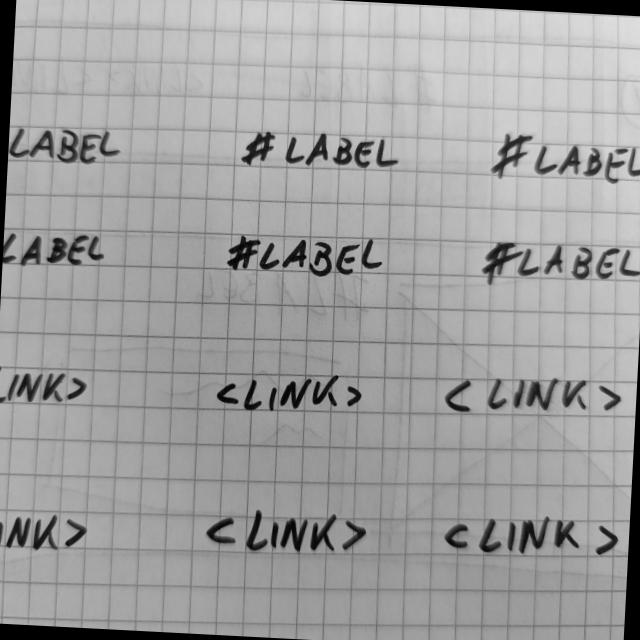 LABEL # LABEL # LABEL
LABEL #LABEL #LABEL
LINK> <LINK> < LINK >
INK> <LINK> <LINK >